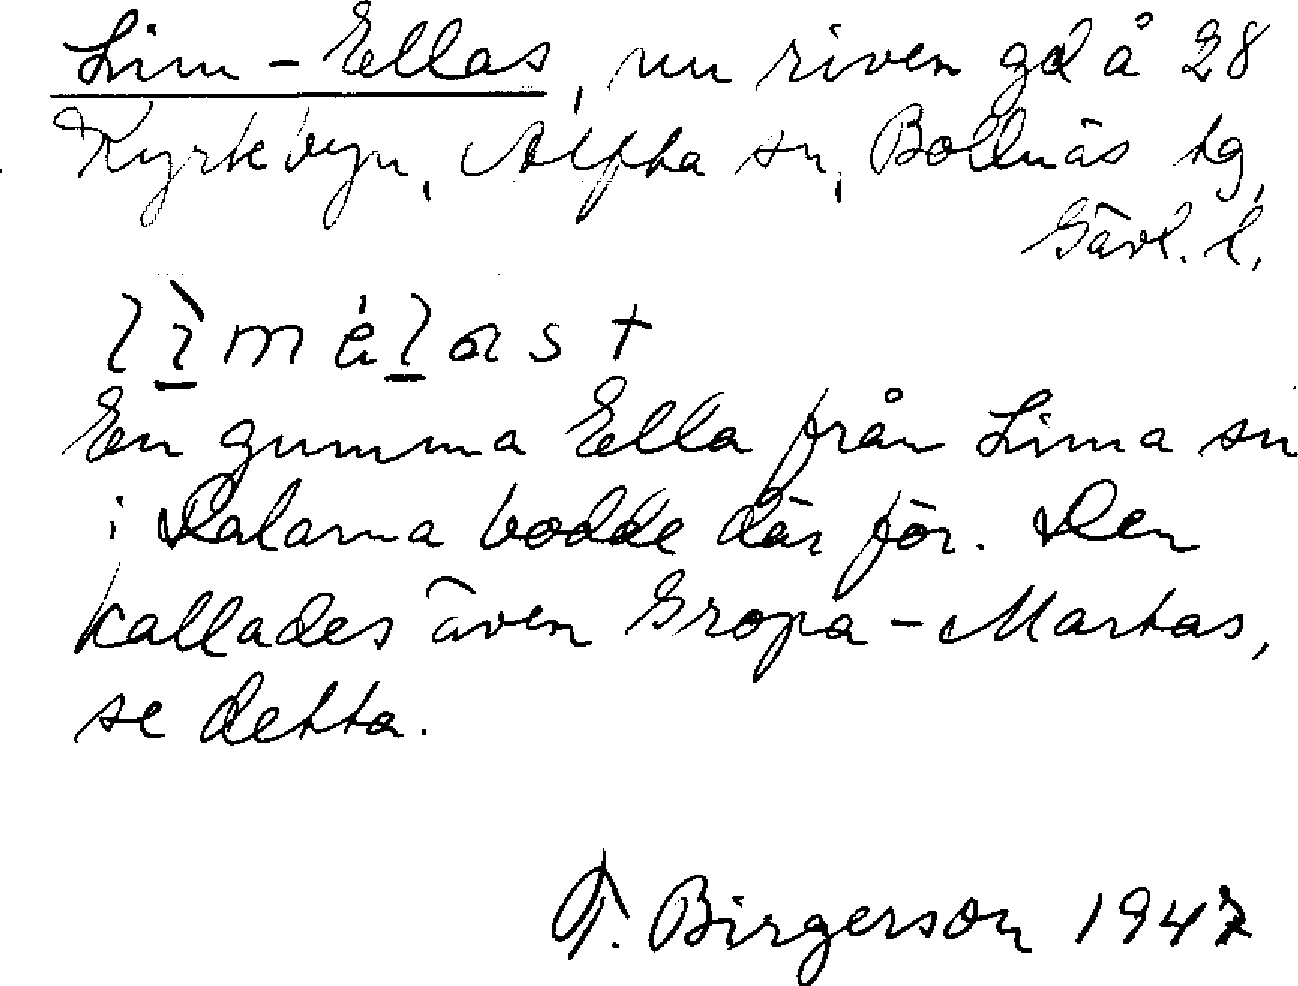 Lim-Ellas, nu riven gd å 28
Kyrkbyn, Alfta sn, Bollnäs tg,
Gävl. l.
lìmélas +
En gumma Ella från Lima sn
i Dalarna bodde där för. Den
kallades även Gropa-Martas,
se detta.
F. Birgerson 1947